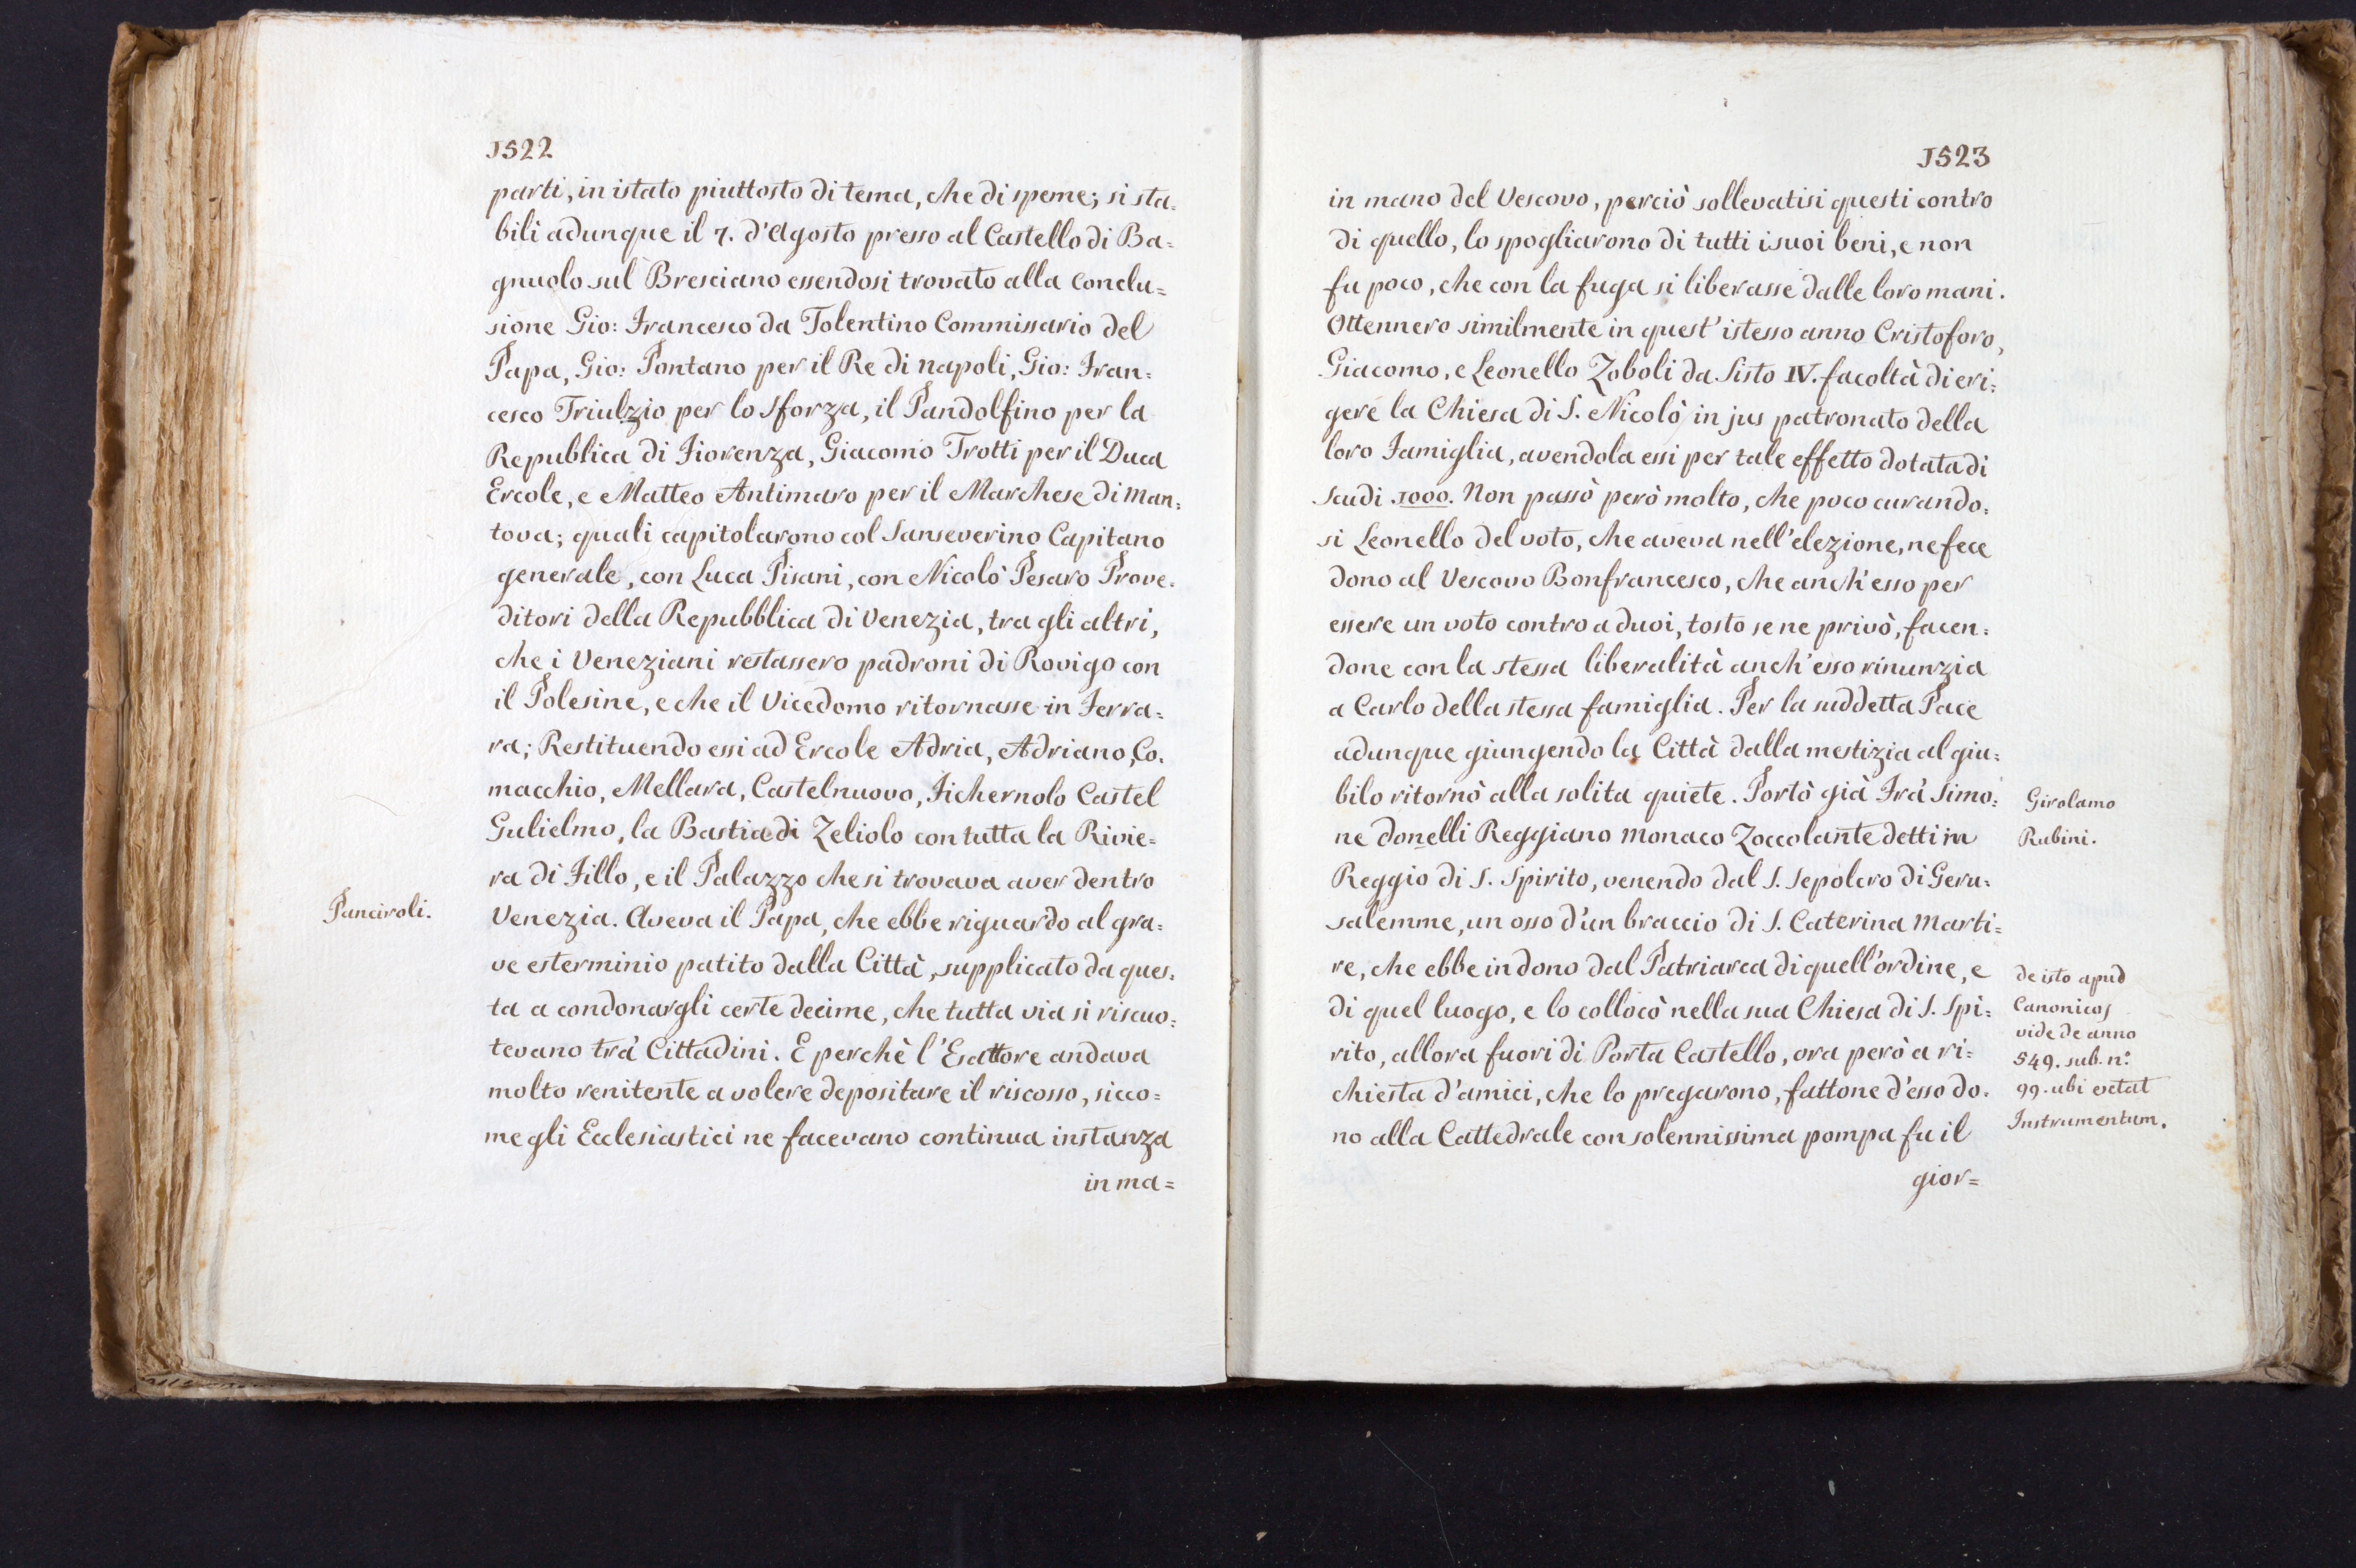 1522
parti, in istato piuttosto di tema, che di speme; si sta=
bilì adunque il 7. d'Agosto presso al Castello di Ba=
gnuolo sul Bresciano essendosi trovato alla Conclu=
sione Gio: Francesco da Tolentino Commissario del
Papa, Gio: Pontano per il Re di Napoli, Gio: Fran=
cesco Triulzio per lo Sforza, il Pandolfino per la
Republica di Fiorenza, Giacomo Trotti per il Duca
Ercole, e Matteo Antimaro per il Marchese di Man=
tova; quali capitolarono col Sanseverino Capitano
generale, con Luca Pisani, con Nicolò Pesaro Prove=
ditori della Repubblica di Venezia, tra gli altri,
che i Veneziani restassero padroni di Rovigo con
il Polesine, e che il Vicedomo ritornasse in Ferra=
ra; Restituendo essi ad Ercole Adria, Adriano, Co=
macchio, Mellara, Castelnuovo, Fichernolo Castel
Gulielmo, la Bastia di Zeliolo con tutta la Rivie=
ra di Fillo, e il Palazzo che si trovava aver dentro
Panciroli.
Venezia. Aveva il Papa, che ebbe riguardo al gra=
ve esterminio patito dalla Città, supplicato da ques=
ta a condonargli certe decime, che tutta via si riscuo=
tevano trà Cittadini. E perchè l'Esattore andava
molto renitente a volere depositare il riscosso, sicco=
me gli Ecclesiastici ne facevano continua instanza
in ma=
1523
in mano del Vescovo, perciò sollevatisi questi contro
di quello, lo spogliarono di tutti i suoi beni, e non
fu poco, che con la fuga si liberasse dalle loro mani.
Ottennero similmente in quest'istesso anno Cristoforo,
Giacomo, e Leonello Zoboli da Sisto IV. facoltà di eri=
gere la Chiesa di S. Nicolò in jus patronato della
loro Famiglia, avendola essi per tale effetto dotata di
scudi 1000. Non passò però molto, che poco curando=
si Leonello del voto, che aveva nell'elezione, ne fece
dono al Vescovo Bonfrancesco, che anch'esso per
essere un voto contro a duoi, tosto se ne privò, facen=
done con la stessa liberalità anch'esso rinunzia
a Carlo della stessa famiglia. Per la suddetta Pace
adunque giungendo la Città dalla mestizia al giu=
bilo ritornò alla solita quiete. Portò già Frà Simo=
Girolamo
Rubini.
ne donelli Reggiano Monaco Zoccolante detti in
Reggio di S. Spirito, venendo dal S. Sepolcro di Geru=
salemme, un osso d'un braccio di S. Caterina Marti=
re, che ebbe in dono dal Patriarca di quell'ordine, e
di quel luogo, e lo collocò nella sua Chiesa di S. Spi=
rito, allora fuori di Porta Castello, ora però a ri=
chiesta d'amici, che lo pregarono, fattone d'esso do=
no alla Cattedrale con solennissima pompa fu il
de isto apud
Canonicos
vide de anno
549. sub. n.º
99. ubi extat
Instrumentum.
gior=